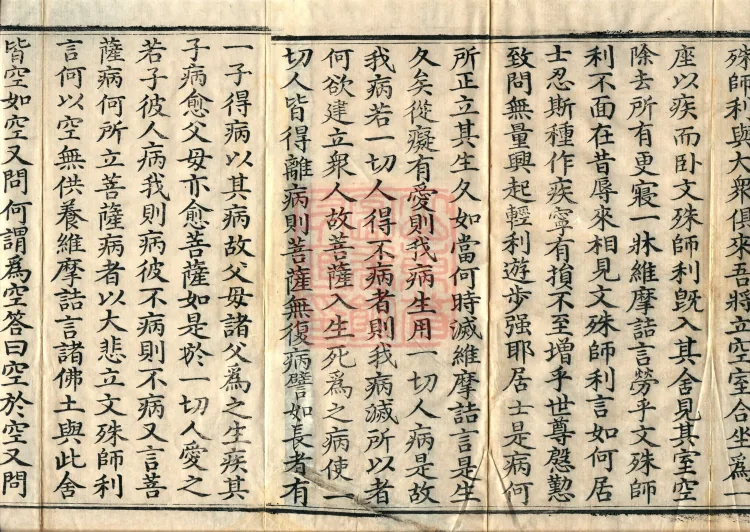 殊師利與大衆俱來吾將立空室合坐爲一
座以疾而卧文殊師利旣入其舍見其室空
除去所有更寢一牀維摩詰言勞乎文殊師
利不面在昔辱來相見文殊師利言如何居
士忍斯種作疾寧有損不至增乎世尊慇懃
致問無量興起輕利遊步强耶居士是病何
所正立其生久如當何時滅維摩詰言是生
久矣從癡有愛則我病生用一切人病是故
我病若一切人得不病者則我病滅所以者
何欲建立衆人故菩薩入生死爲之病使一
切人皆得離病則菩薩無復病譬如長者有
一子得病以其病故父母諸父爲之生疾其
子病愈父母亦愈菩薩如是於一切人愛之
若子彼人病我則病彼不病則不病又言菩
薩病何所立菩薩病者以大悲立文殊師利
言何以空無供養維摩詰言諸佛土與此舍
皆空如空又問何謂爲空答曰空於空又問